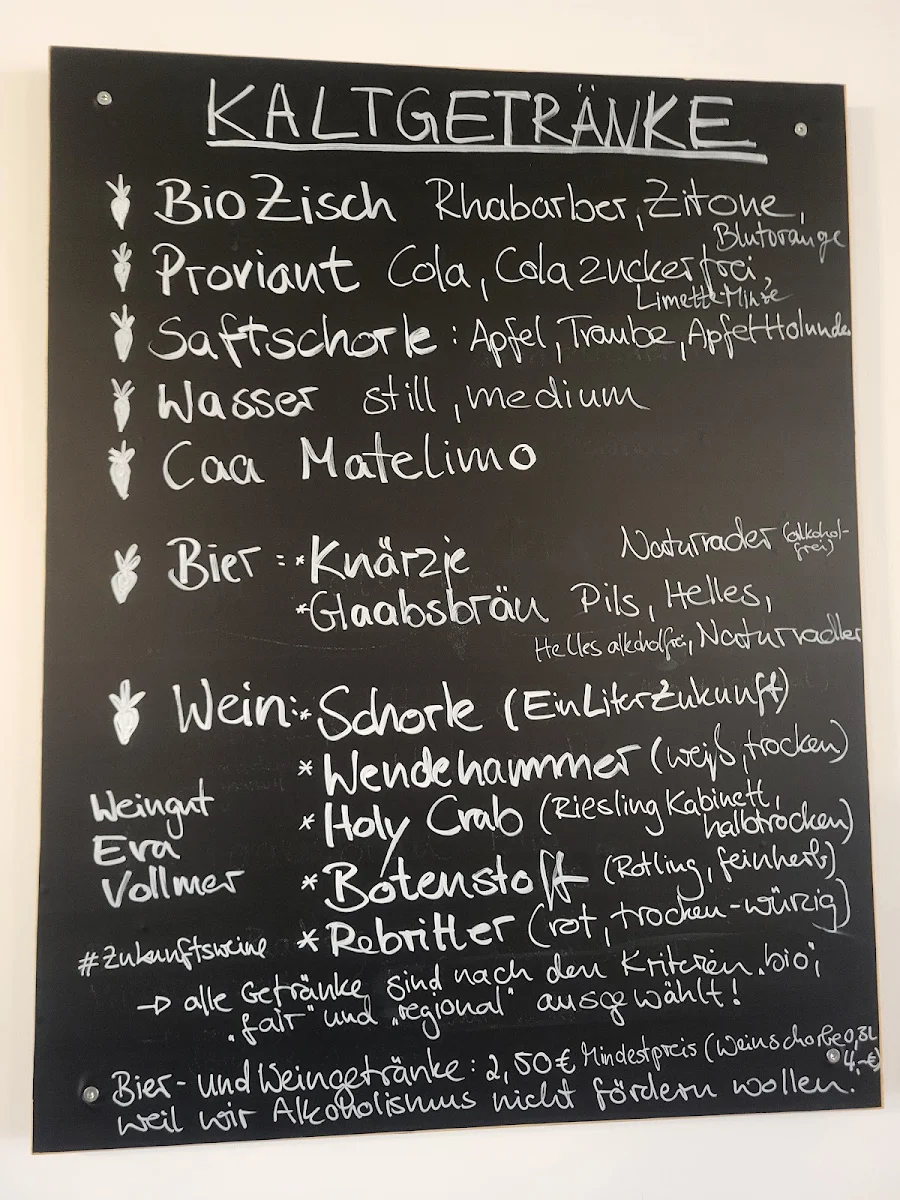 KALTGETRÄNKE
BioZisch Rhabarber, Zitone,
Blutorange
Proviant Cola, Cola zuckerfrei,
Limette-Minze
Saftschorle: Apfel, Traube, Apfel-Holunder
Wasser still, medium
Caa Matelimo
Bier: *Knärzje Naturrader (alkohol-
frei)
*Glaabsbräu Pils, Helles,
Helles alkoholfrei, Naturradler
Wein: *Schorle (EinLiterZukunft)
*Wendehammer (weiß, trocken)
*Holy Crab (Riesling Kabinett,
halbtrocken)
*Botenstoff (Rotling, feinherb)
*Rebritter (rot, trocken-würzig)
Weingut
Eva
Vollmer
#Zukunftsweine
→ alle Getränke sind nach den Kriterien „bio",
„fair" und „regional" ausgewählt!
Bier- und Weingetränke: 2,50€ Mindestpreis (Weinschorle 0,3L
4,-€)
weil wir Alkoholismus nicht fördern wollen.